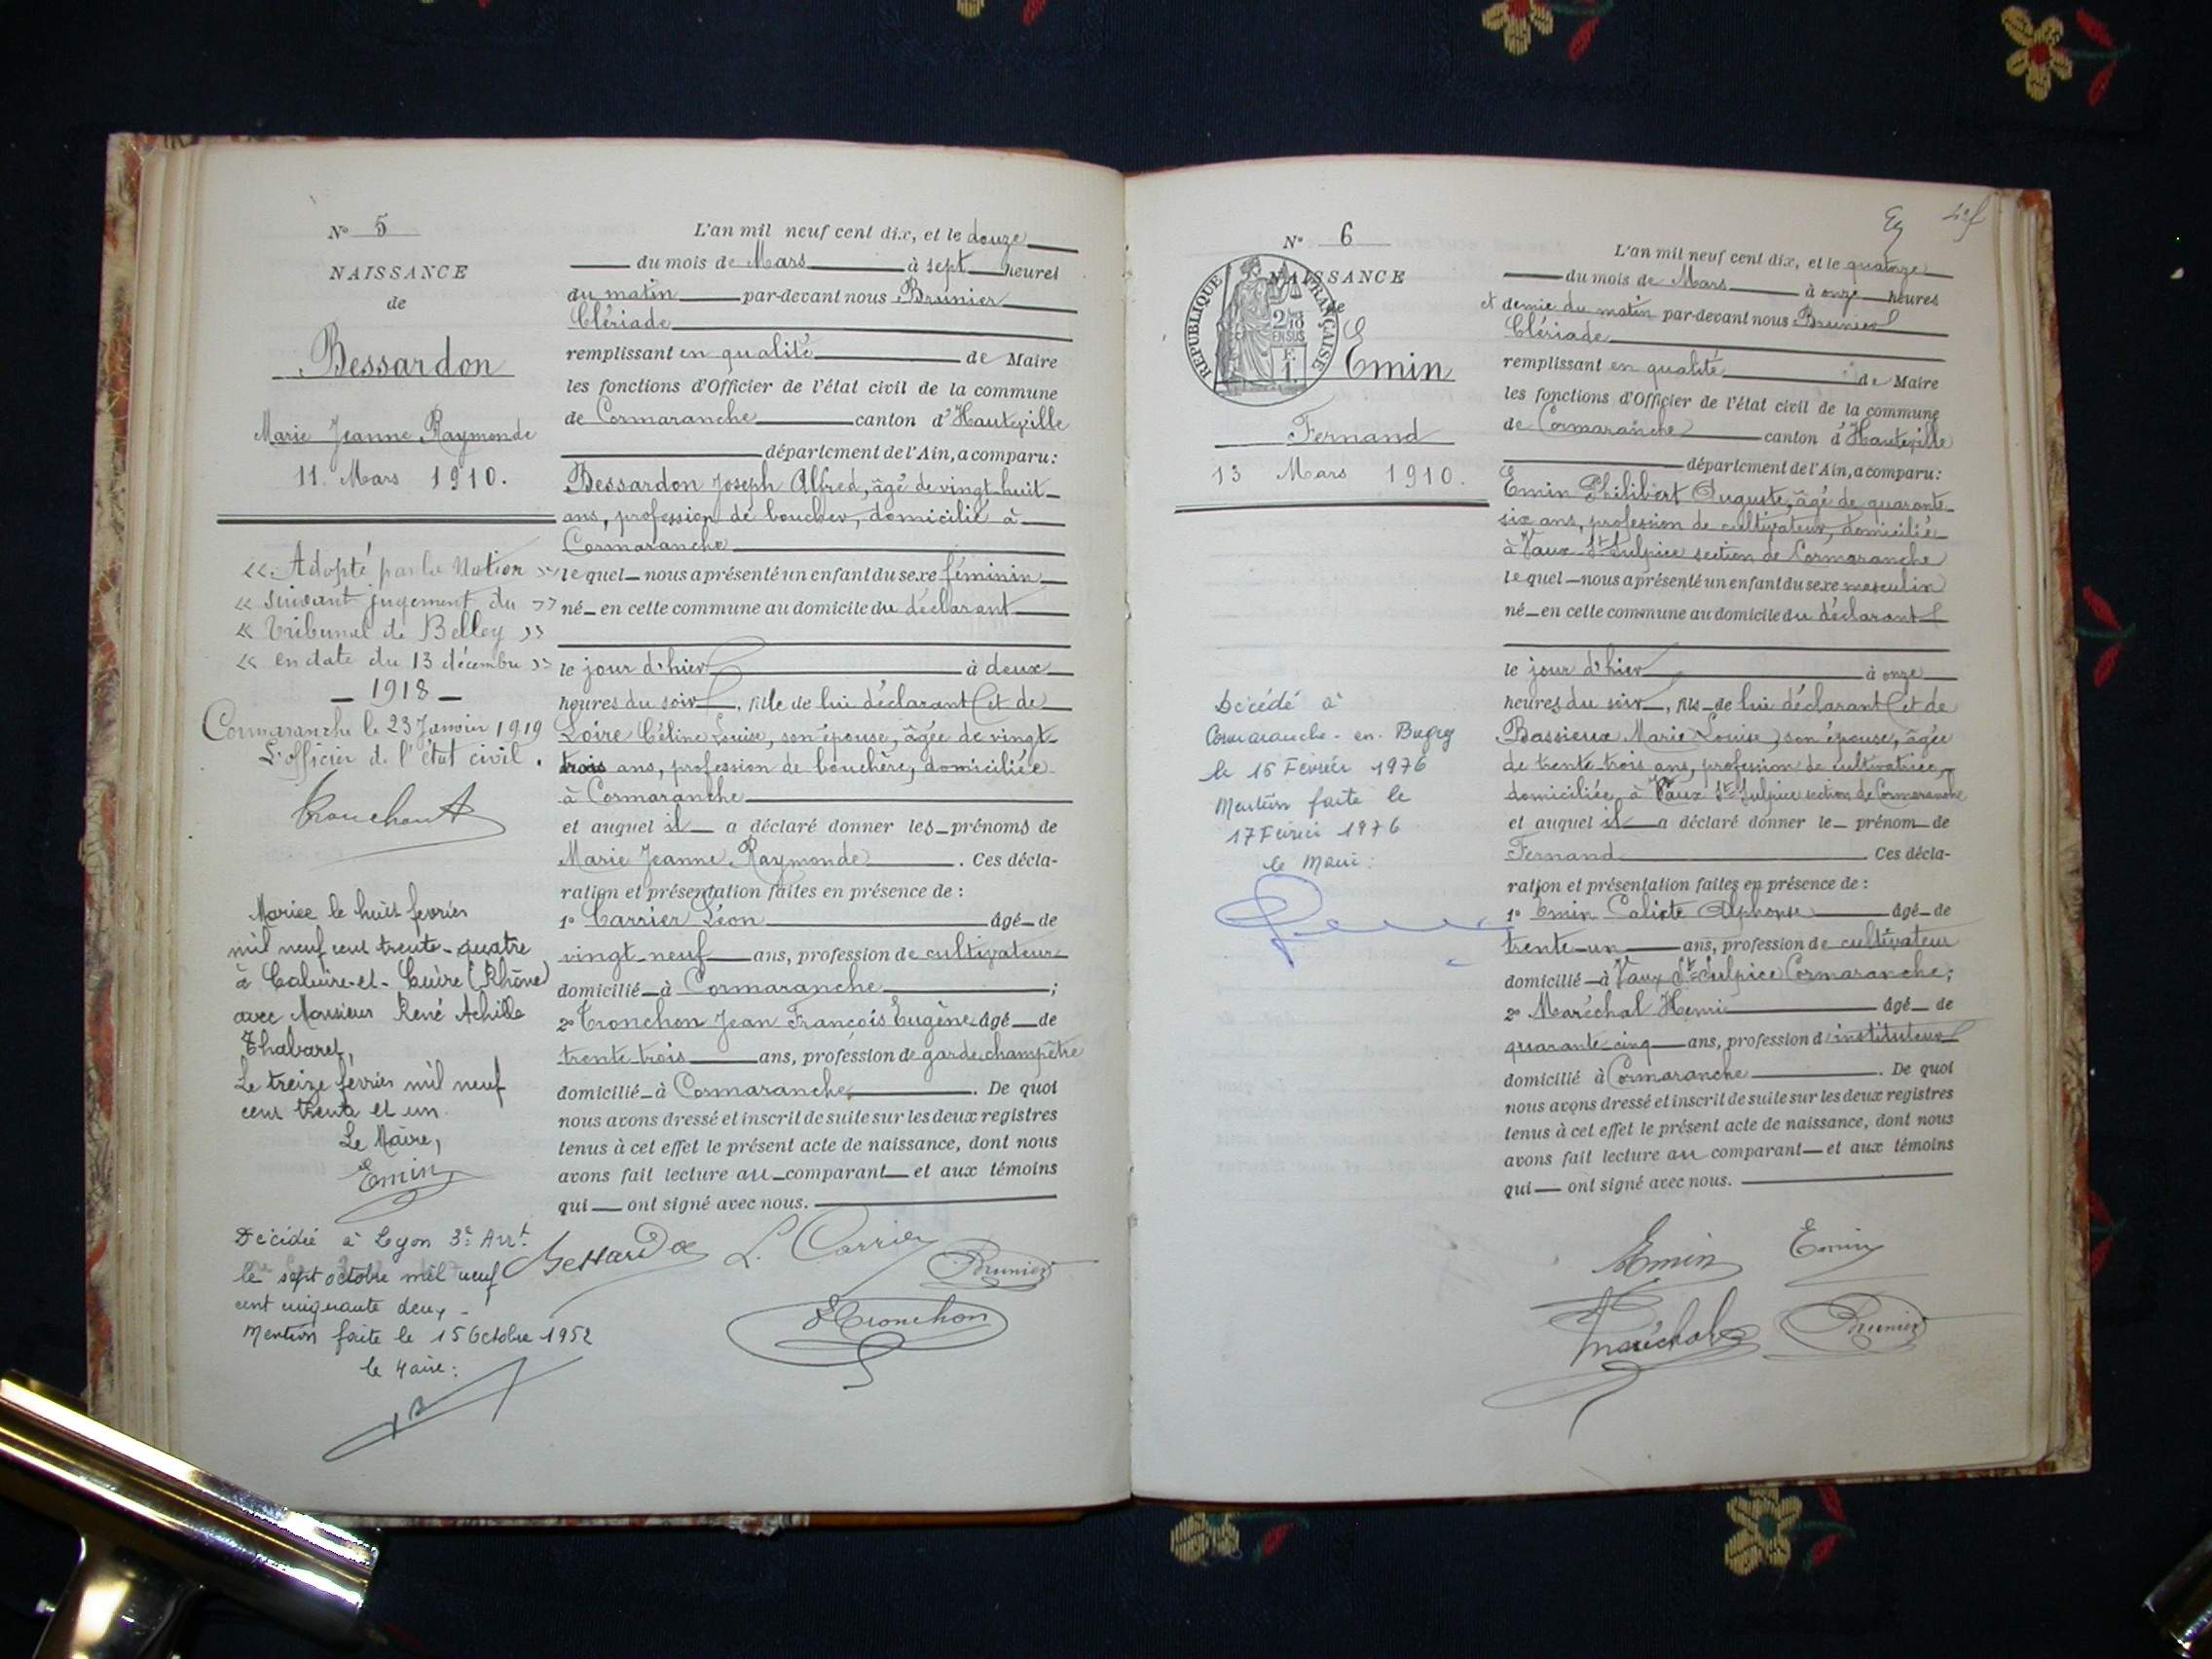 N° 5
NAISSANCE
de
Bessardon
Marie Jeanne Raymonde
11 Mars 1910.
« Adopté par la Nation »
« suivant jugement du »
« Tribunal de Belley »
« en date du 13 décembre »
— 1918 —
Cormaranche le 23 Janvier 1919
L'officier de l'état civil.
Mariée le huit fevrier
mil neuf cent trente-quatre
à Caluire-et-Cuire (Rhône)
avec Monsieur René Achille
Thabaret,
Le treize fevrier mil neuf
cent trente et un
Le Maire,
Emin
Décédée à Lyon 3e Arrt
le sept octobre mil neuf
cent cinquante deux -
Mention faite le 15 Octobre 1952
le Maire :
L'an mil neuf cent dix, et le douze
du mois de Mars à sept heures
du matin par-devant nous Brunier
Clériade
remplissant en qualité de Maire
les fonctions d'Officier de l'état civil de la commune
de Cormaranche canton d'Hauteville
département de l'Ain, a comparu :
Bessardon Joseph Alfred, âgé de vingt-huit
ans, profession de boucher, domicilié à
Cormaranche
lequel nous a présenté un enfant du sexe féminin
né en cette commune au domicile du déclarant
le jour d'hier à deux
heures du soir, fille de lui déclarant et de
Loire Céline Louise, son épouse, âgée de vingt-
trois ans, profession de bouchère, domiciliée
à Cormaranche
et auquel il a déclaré donner les prénoms de
Marie Jeanne Raymonde. Ces décla-
ration et présentation faites en présence de :
1° Carrier Léon âgé de
vingt-neuf ans, profession de cultivateur
domicilié à Cormaranche ;
2° Tronchon Jean François Eugène âgé de
trente-trois ans, profession de garde champêtre
domicilié à Cormaranche. De quoi
nous avons dressé et inscrit de suite sur les deux registres
tenus à cet effet le présent acte de naissance, dont nous
avons fait lecture au comparant et aux témoins
qui ont signé avec nous.
Bessardon L. Carrier
Brunier
Tronchon
4 f
N° 6
NAISSANCE
de
REPUBLIQUE FRANÇAISE
2/10
EN SUS
F.
1.
Emin
Fernand
13 Mars 1910.
Décédé à
Cormaranche-en-Bugey
le 16 Février 1976
Mention faite le
17 Février 1976
le Maire :
L'an mil neuf cent dix, et le quatorze
du mois de Mars à onze heures
et demie du matin par-devant nous Brunier
Clériade
remplissant en qualité de Maire
les fonctions d'Officier de l'état civil de la commune
de Cormaranche canton d'Hauteville
département de l'Ain, a comparu :
Emin Philibert Auguste, âgé de quarante-
six ans, profession de cultivateur, domicilié
à Vaux St-Sulpice section de Cormaranche
lequel nous a présenté un enfant du sexe masculin
né en cette commune au domicile du déclarant
le jour d'hier à onze
heures du soir, fils de lui déclarant et de
Bassieux Marie Louise, son épouse, âgée
de trente-trois ans, profession de cultivatrice,
domiciliée à Vaux St-Sulpice section de Cormaranche
et auquel il a déclaré donner le prénom de
Fernand. Ces décla-
ration et présentation faites en présence de :
1° Emin Calixte Alphonse âgé de
trente-un ans, profession de cultivateur
domicilié à Vaux St-Sulpice Cormaranche ;
2° Maréchal Henri âgé de
quarante-cinq ans, profession d'instituteur
domicilié à Cormaranche. De quoi
nous avons dressé et inscrit de suite sur les deux registres
tenus à cet effet le présent acte de naissance, dont nous
avons fait lecture au comparant et aux témoins
qui ont signé avec nous.
Emin Emin
Maréchal Brunier